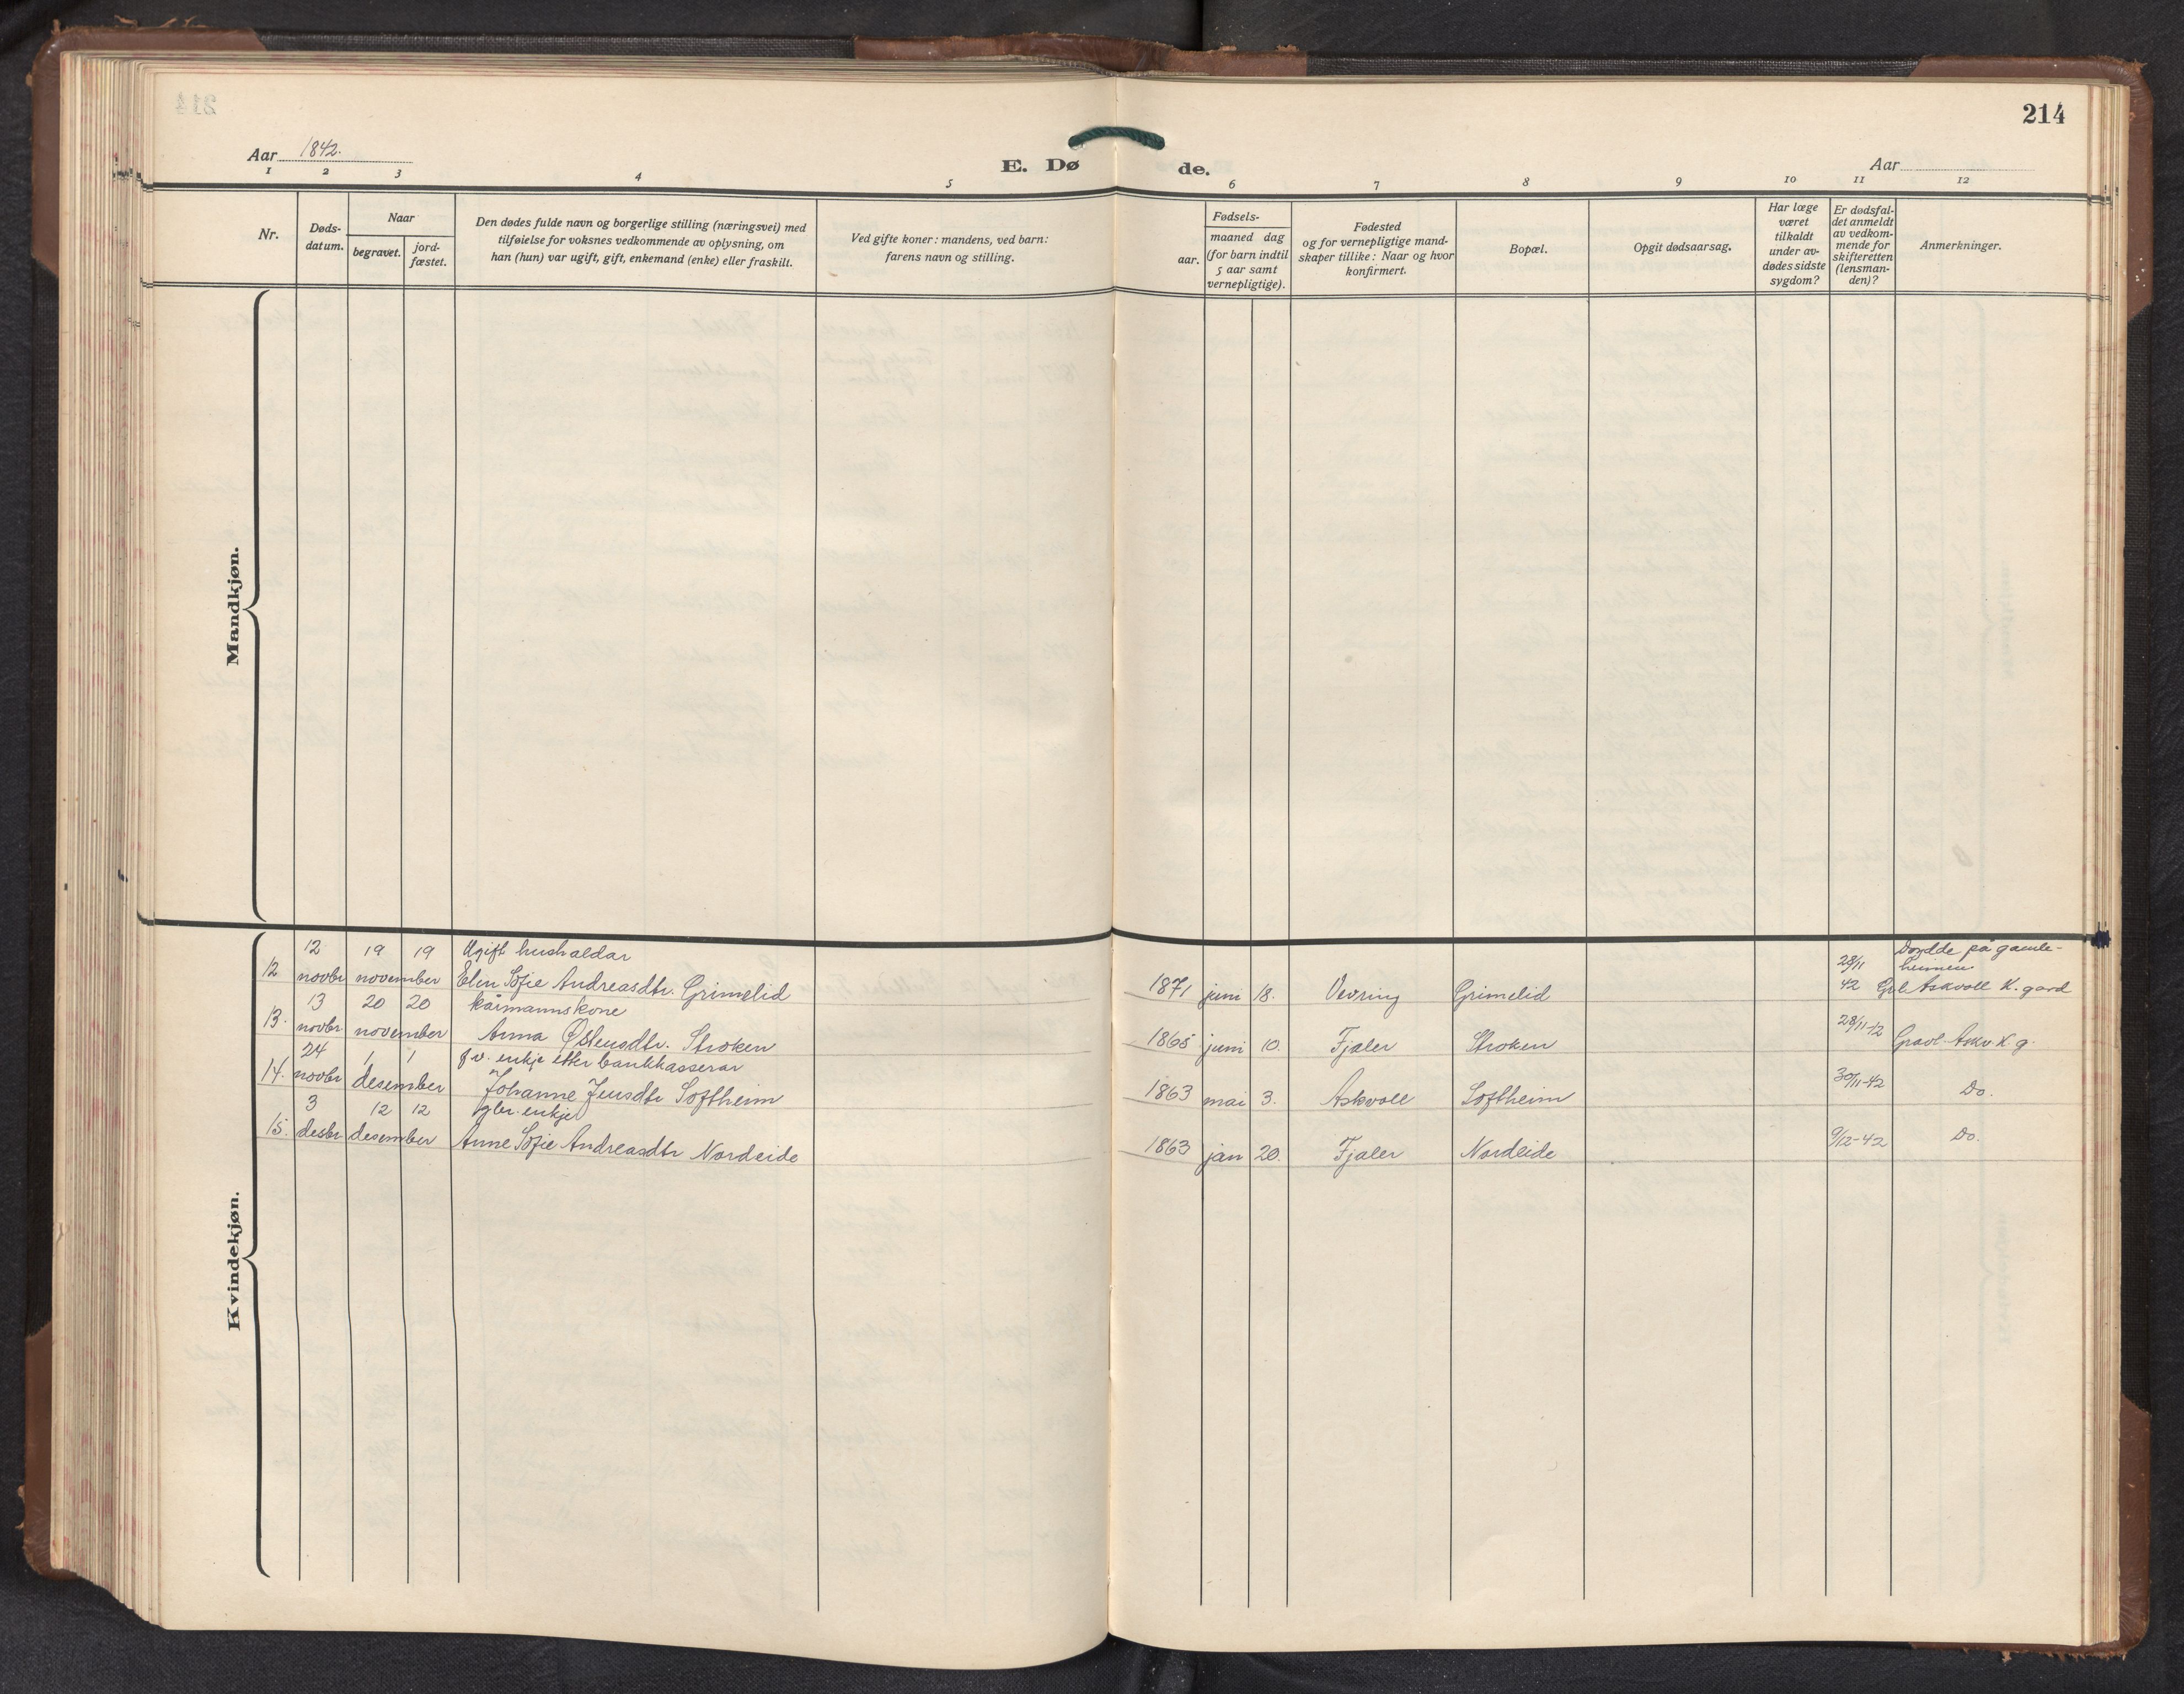 214
Aar 1842.
E. Døde.
Aar
1 2 3 4 5 6 7 8 9 10 11 12
Nr.
Døds-
datum.
Naar
begravet.
jord-
fæstet.
Den dødes fulde navn og borgerlige stilling (næringsvei) med
tilføielse for voksnes vedkommende av oplysning, om
han (hun) var ugift, gift, enkemand (enke) eller fraskilt.
Ved gifte koner: mandens, ved barn:
farens navn og stilling.
Fødsels-
aar.
maaned dag
(for barn indtil
5 aar samt
vernepligtige).
Fødested
og for vernepligtige mand-
skaper tillike: Naar og hvor
konfirmert.
Bopæl.
Opgit dødsaarsag.
Har læge
været
tilkaldt
under av-
dødes sidste
sygdom?
Er dødsfal-
det anmeldt
av vedkom-
mende for
skifteretten
(lensman-
den)?
Anmerkninger.
Mandkjøn.
Kvindekjøn.
12 19 19 Ugift hushaldar 28/11 Døydde på gamle-
heimen
12 novbr november Elen Sofie Andreasdtr. Grimelid 1871 juni 18. Vevring Grimelid 42 Askvoll K. gard
13 20 20 kårmannskone
13. novbr november Anna Østensdtr. Stroken 1865 juni 10. Fjaler Stroken 28/11-42 Gravl. Askv. K. g.
24 1 1 f v. enkje etter bankkasserar
14. novbr desember Johanne Jensdtr Softheim 1863 mai 3. Askvoll Softheim 30/11-42 Do.
3 12 12 gbr. enkje
15. desbr desember Anne Sofie Andreasdtr Nordeide 1863 jan 20. Fjaler Nordeide 9/12-42 Do.